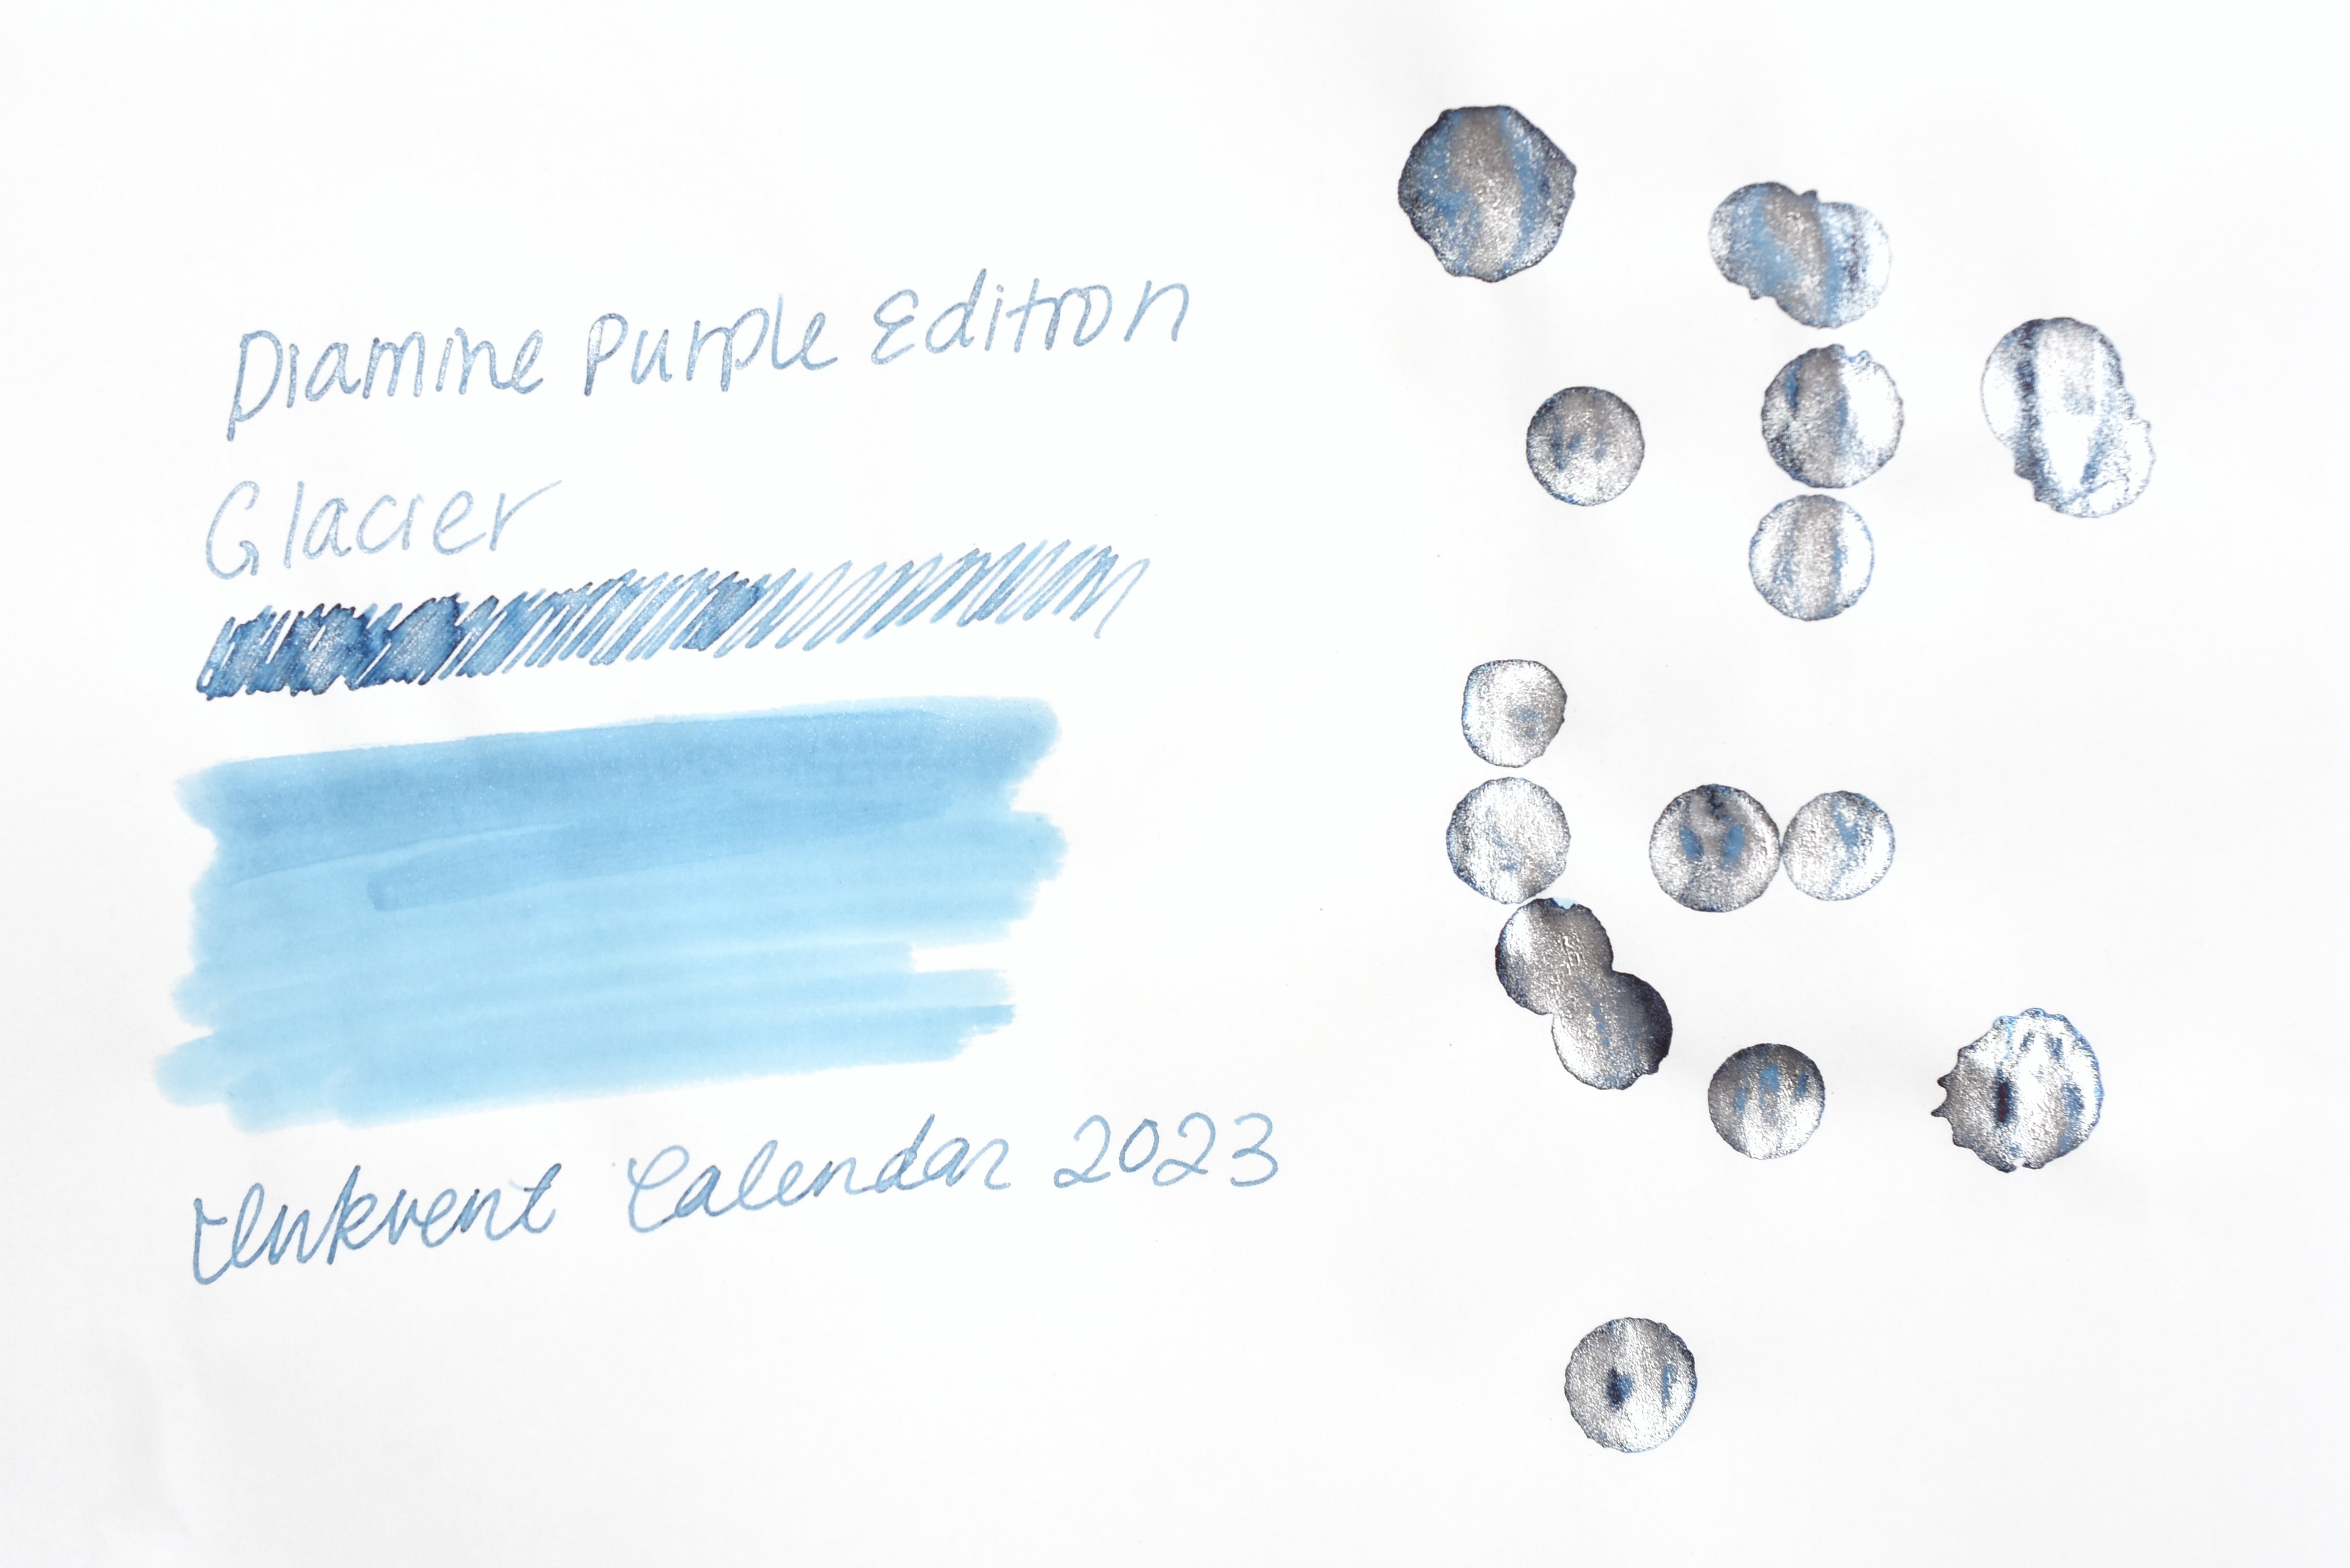 Diamine Purple Edition
Glacier
Inkvent Calendar 2023